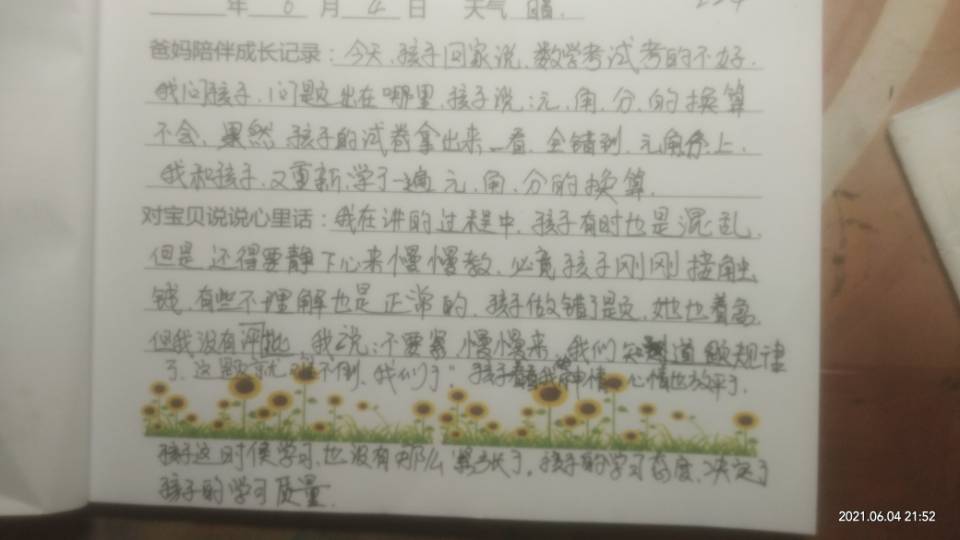 年 6 月 4 日 天气 晴.
爸妈陪伴成长记录：今天,孩子回家说,数学考试考的不好.
我问孩子,问题出在哪里,孩子说:元、角、分、的换算
不会,果然,孩子的试卷拿出来,一看,全错到,元角分上,
我和孩子,又重新,学了一遍元、角、分的换算.
对宝贝说说心里话：我在讲的过程中,孩子有时也是混乱,
但是还得要静下心来慢慢教,必竟孩子刚刚接触
钱,有些不理解也是正常的,孩子做错了题,她也着急,
但我没有评批,我说:不要紧,慢慢来,我们知道题规律
了,这题就难不倒,我们了"孩子看我神情,心情也放平了.
孩子这时侯学习,也没有那么紧张了,孩子的学习态度,决定了
孩子的学习质量.
2021.06.04 21:52